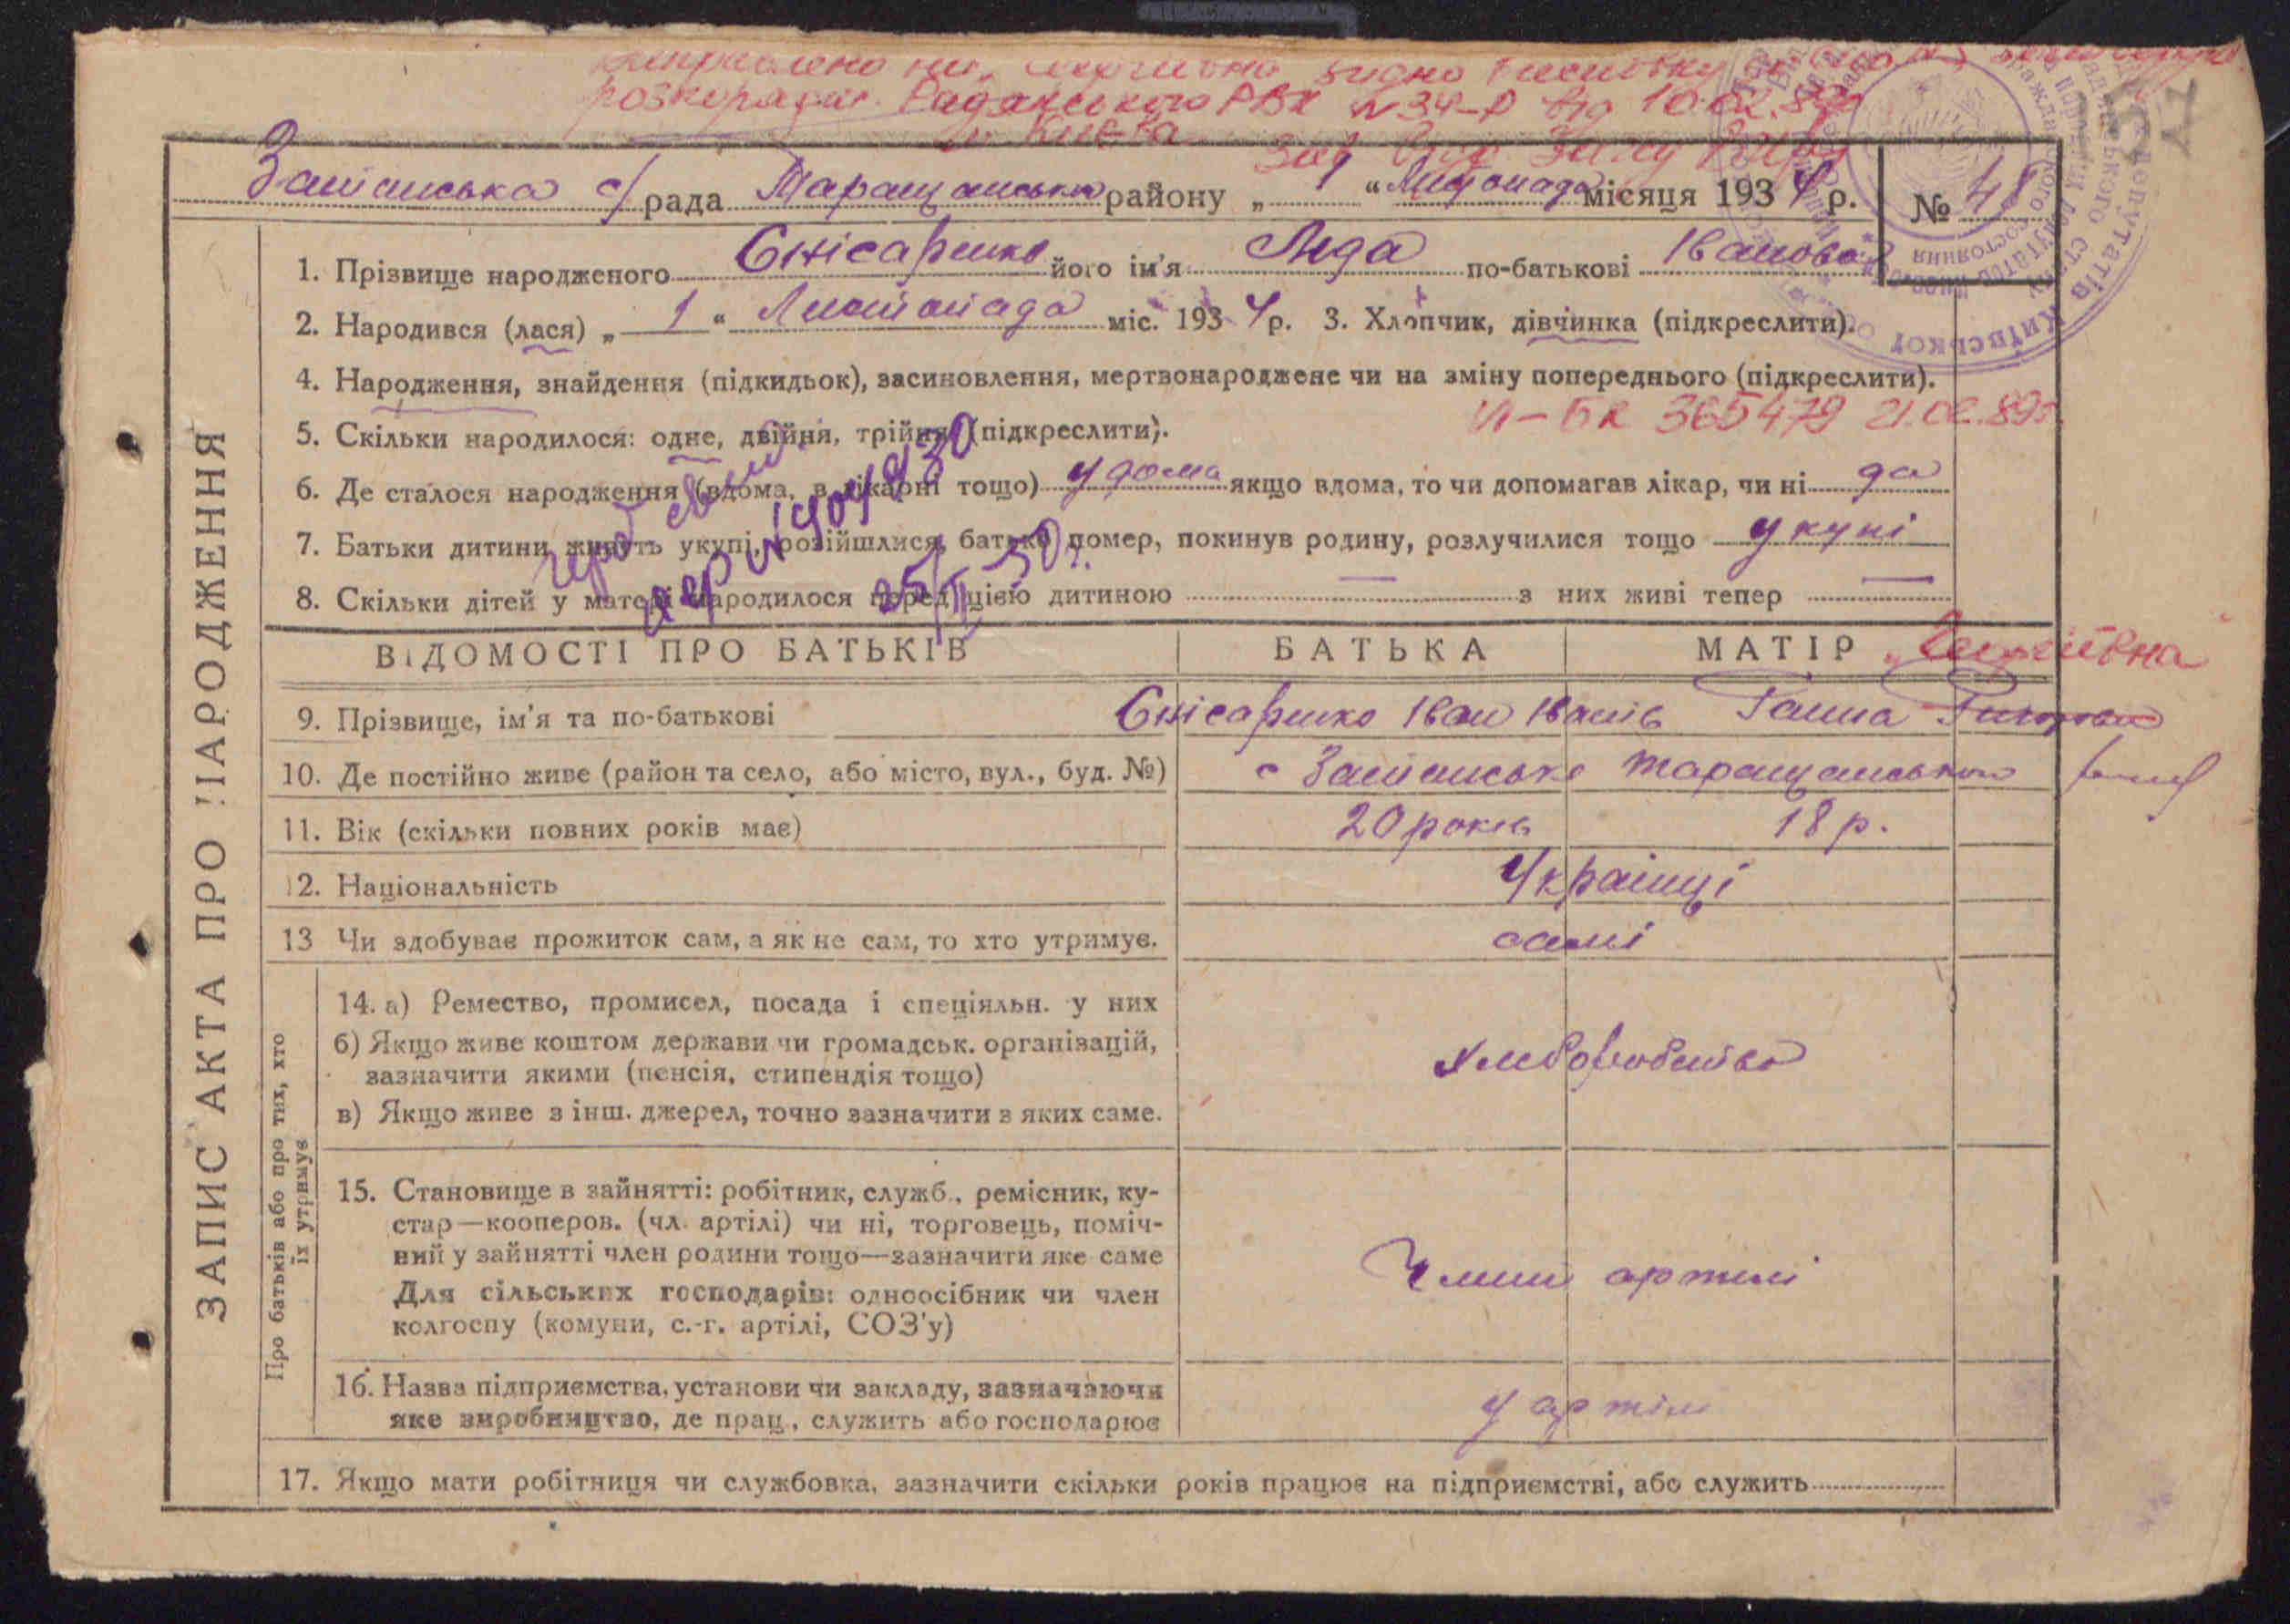 розпоряджен. Радянського РВК №34-р від 10.02.89р
м. Києва
с/рада Таращанськи району „ 1 “ Листопада місяця 1934 р. № 48
1. Прізвище народженого Снісаренко його ім'я Лида по-батькові Іванова
2. Народився (лася) „ 1 “ Листопада міс. 1934 р. 3. Хлопчик, дівчинка (підкреслити).
4. Народження, знайдення (підкидьок), засиновлення, мертвонароджене чи на зміну попереднього (підкреслити).
VI-БК 365479 21.02.89г.
5. Скільки народилося: одне, двійня, трійня (підкреслити).
6. Де сталося народження (вдома, в лікарні тощо) удома якщо вдома, то чи допомагав лікар, чи ні да
7. Батьки дитини живуть укупі, розійшлися, батько помер, покинув родину, розлучилися тощо укупі
8. Скільки дітей у матері народилося перед цією дитиною — з них живі тепер —
ВІДОМОСТІ ПРО БАТЬКІВ БАТЬКА МАТІР
9. Прізвище, ім'я та по-батькові Снісаренко Іван Іванів Ганна
10. Де постійно живе (район та село, або місто, вул., буд. №) с
11. Вік (скільки повних років має) 20 років 18 р.
12. Національність Українці
13 Чи здобуває прожиток сам, а як не сам, то хто утримує. самі
14. а) Ремество, промисел, посада і спеціяльн. у них
б) Якщо живе коштом держави чи громадськ. організацій,
зазначити якими (пенсія, стипендія тощо)
в) Якщо живе з інш. джерел, точно зазначити з яких саме.
Хлеборобство
15. Становище в зайнятті: робітник, служб., ремісник, ку-
стар—кооперов. (чл. артілі) чи ні, торговець, поміч-
ний у зайнятті член родини тощо—зазначити яке саме
Для сільських господарів: одноосібник чи член
колгоспу (комуни, с.-г. артілі, СОЗ'у)
Члени артилі
16. Назва підприємства, установи чи закладу, зазначаючи
яке виробництво, де прац., служить або господарює
у артілі
17. Якщо мати робітниця чи службовка, зазначити скільки років працює на підприємстві, або служить
ЗАПИС АКТА ПРО НАРОДЖЕННЯ
Про батьків або про тих, хто
їх утримує